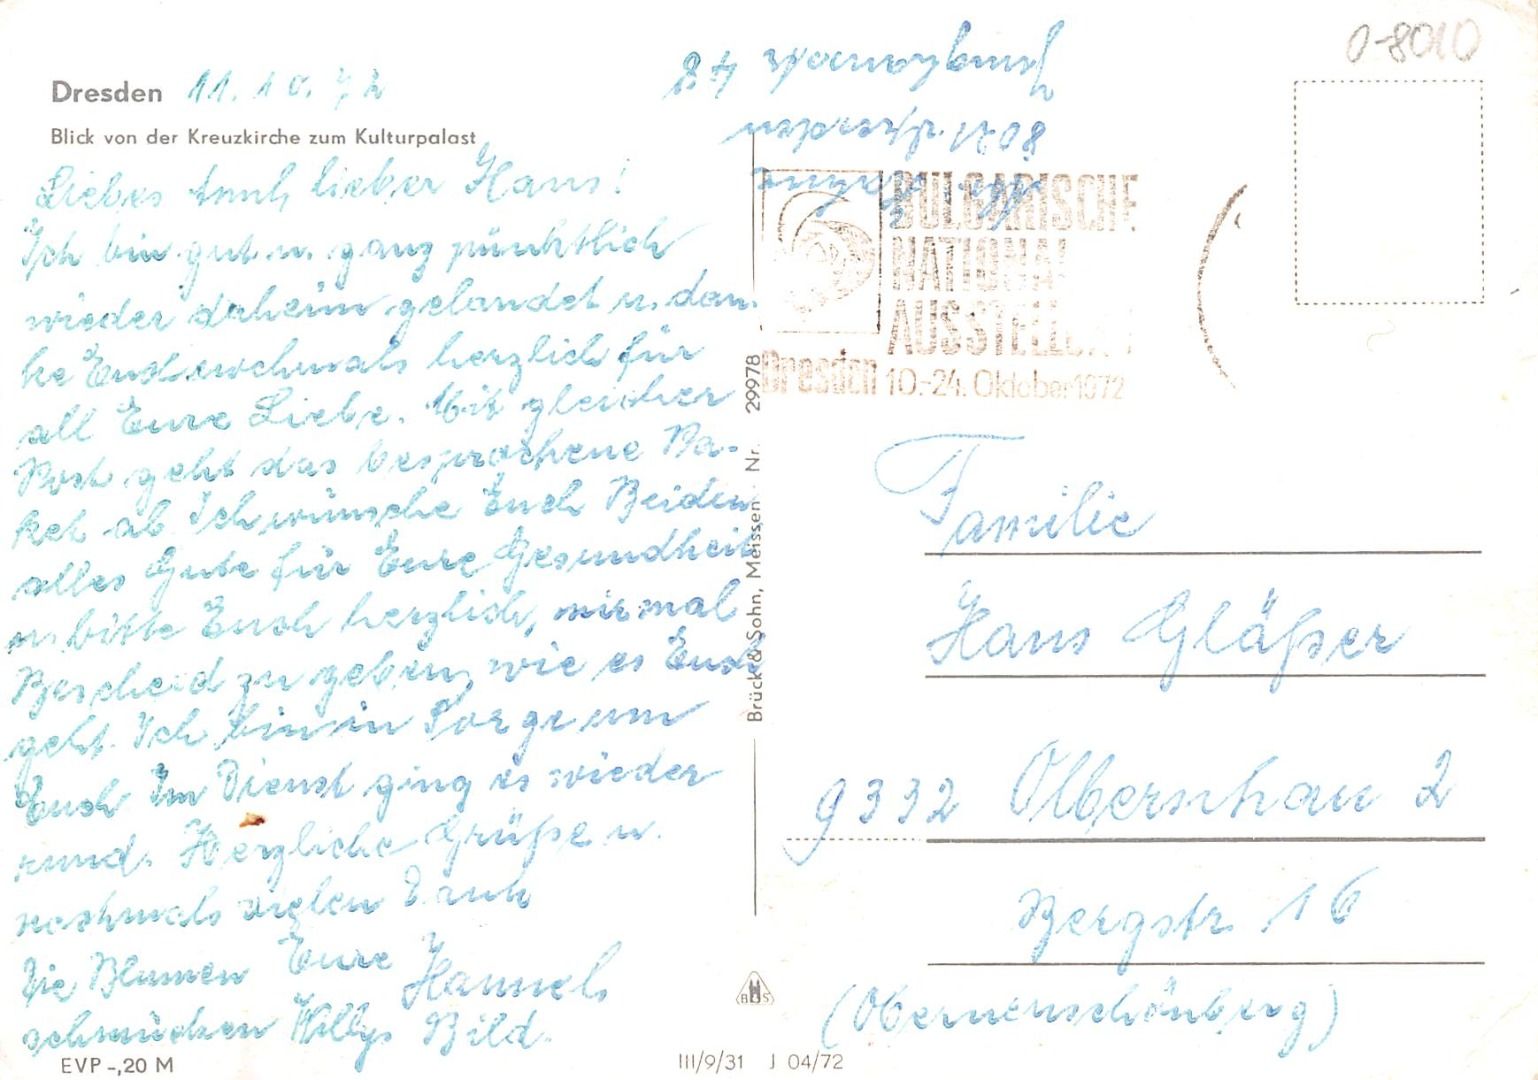 Dresden 11.10.72
Blick von der Kreuzkirche zum Kulturpalast
Liebes lieber Hans!
Ich bin gut u. ganz pünktlich
wieder daheim gelandet u. dan-
ke Euch nochmals herzlich für
all Eure Liebe. Mit gleicher
Post geht das besprochene Pa-
ket ab. Ich wünsche Euch Beiden
alles Gute für Eure Gesundheit
u. bitte Euch herzlich, mir mal
Bescheid zu geben, wie es Euch
geht. Ich bin in Sorge um
Euch. Im Dienst ging es wieder
rund. Herzliche Grüße u.
nochmals vielen Dank
Eure
Hannel
Die Blumen
schmücken Willys Bild.
EVP -,20 M
1708
0-8010
BULGARISCHE
NATIONAL
AUSSTELLUNG
Dresden 10.-24. Oktober 1972
Brück & Sohn, Meissen · Nr. 29978
Familie
Hans Gläßer
9332 Olbernhau 2
Bergstr. 16
(Oberneuschönberg)
B&S
III/9/31 J 04/72